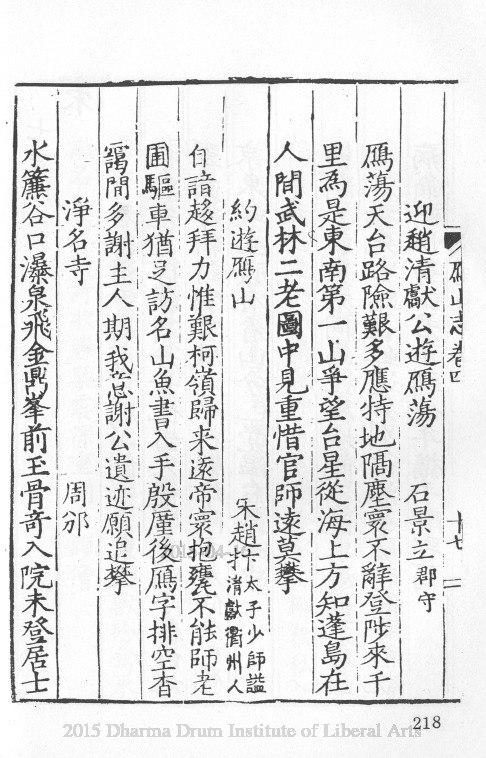 鴈山志卷四 十七
迎趙清獻公遊鴈蕩 石景立郡守
鴈蕩天台路險艱多應特地隔塵寰不辭登陟來千
里爲是東南第一山爭望台星從海上方知蓬島在
人間武林二老圖中見重惜官師遠莫攀
約遊鴈山 宋趙抃太子少師謚
清獻衢州人
自諳趍拜力惟艱柯嶺歸來遠帝寰抱甕不能師老
圃驅車猶足訪名山魚書入手殷後鴈字排空杳
靄間多謝主人期我意謝公遺迹願追攀
淨名寺 周邠
水簾谷口瀑泉飛金鼎峯前玉骨奇入院未登居士
218
2015 Dharma Drum Institute of Liberal Arts